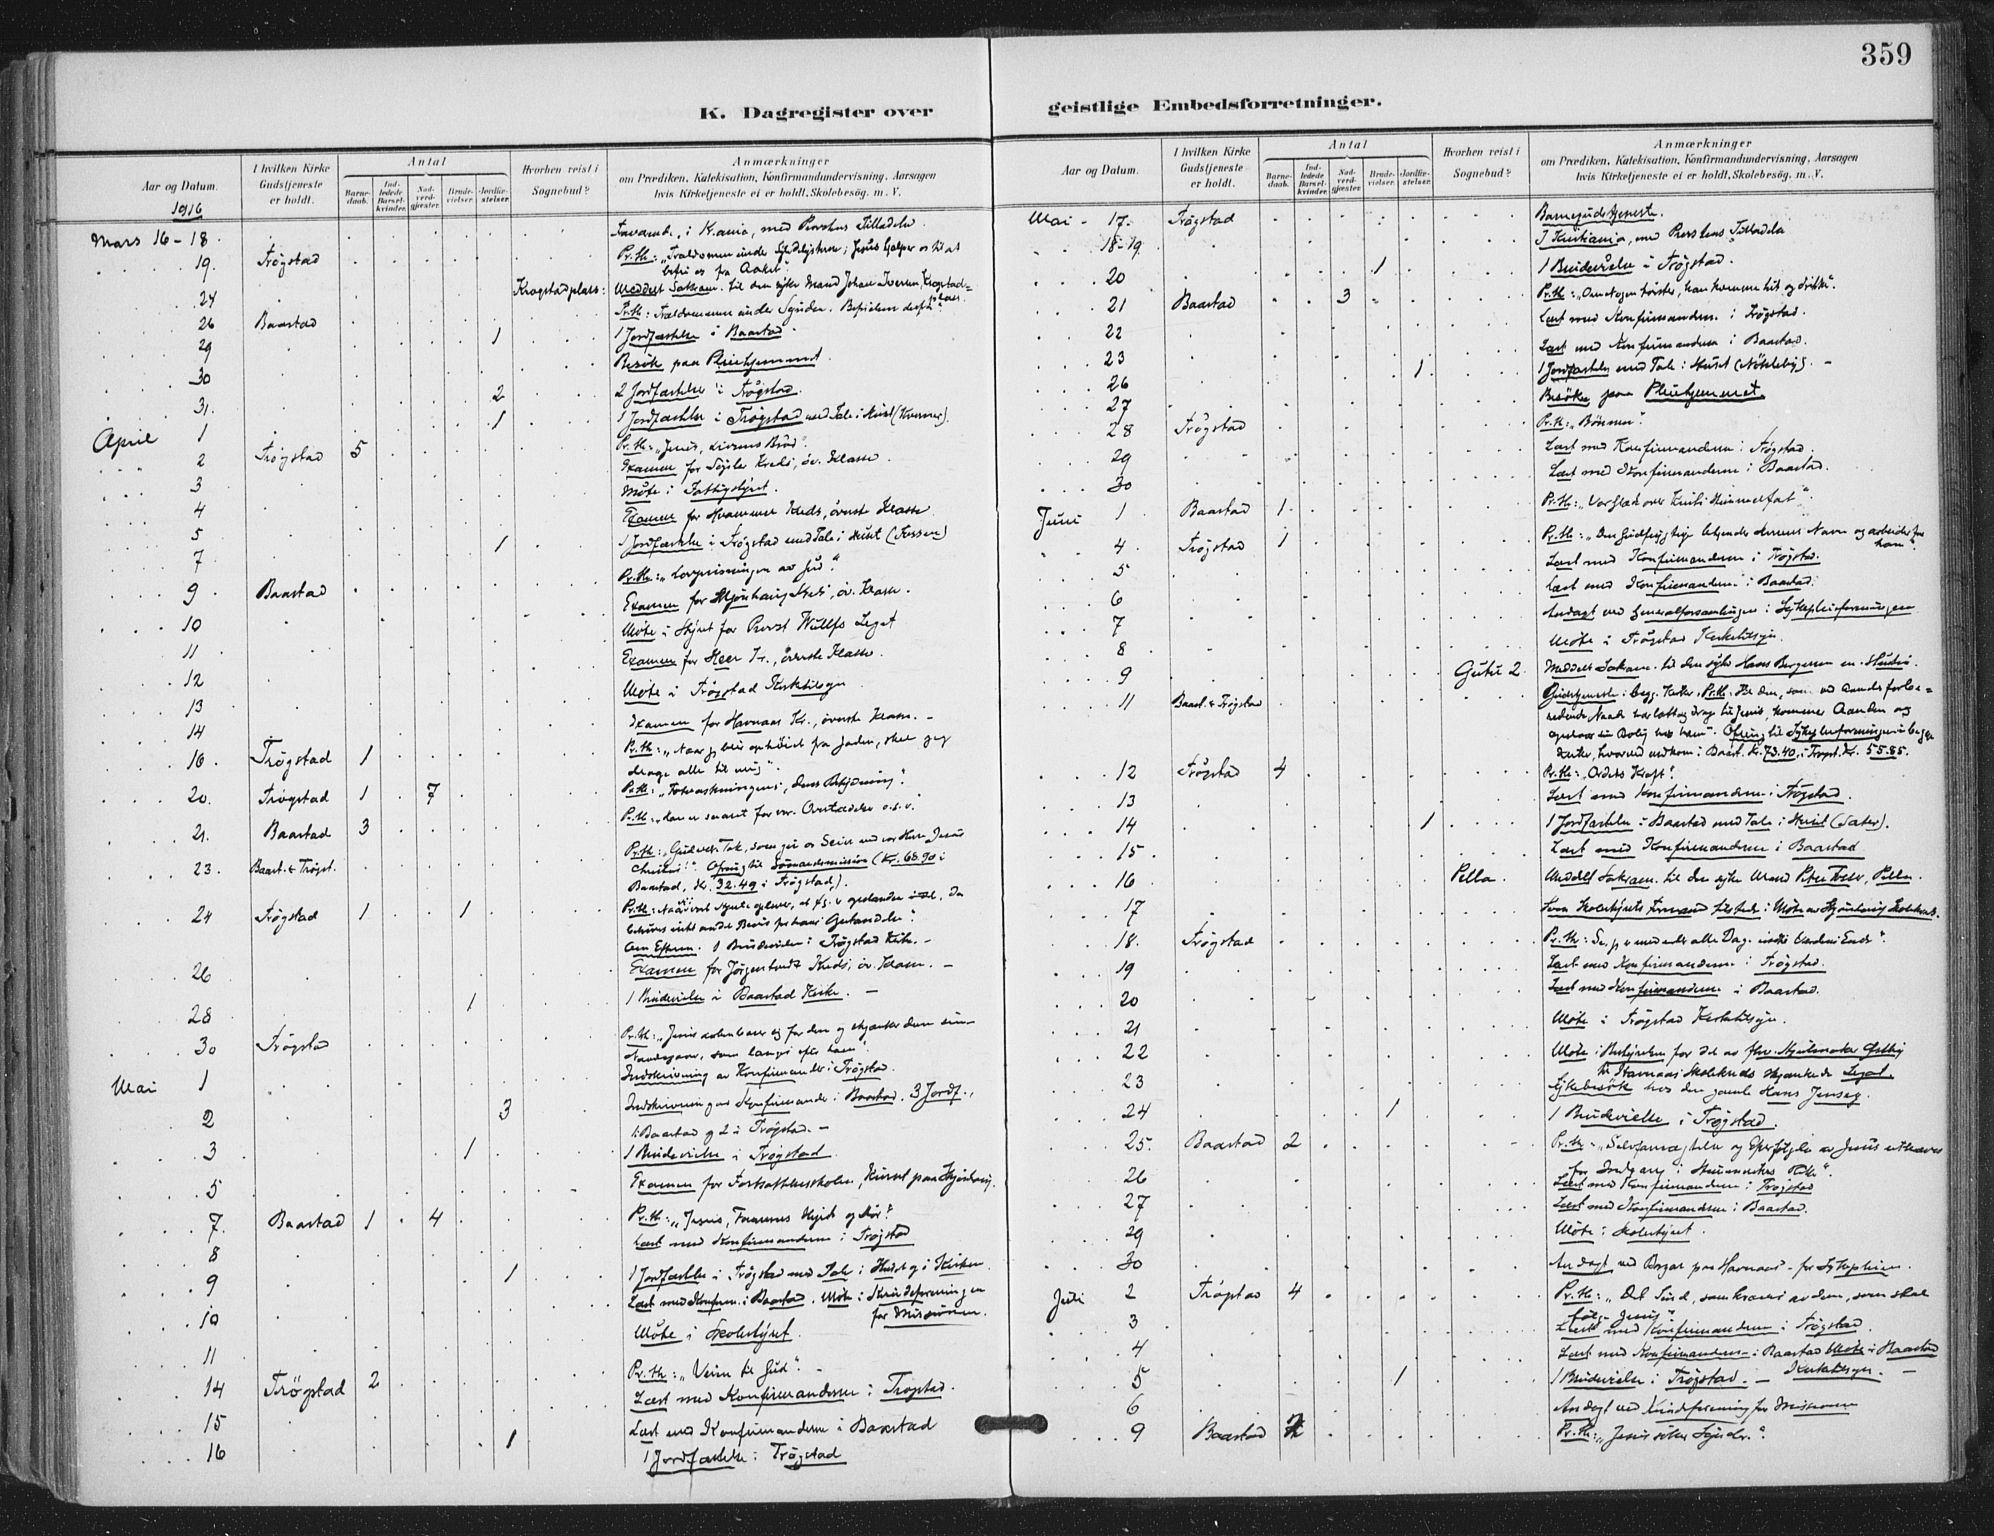 359
K. Dagregister over
geistlige Embedsforretninger.
Aar og Datum.
I hvilken Kirke Gudstjeneste er holdt.
Antal
Barnedaab.
Indledede Barselkvinder.
Nadverdgjester.
Brudevielser.
Jordfæstelser.
Hvorhen reist i Sognebud?
Anmærkninger
om Prædiken, Katekisation, Konfirmandundervisning, Aarsagen
hvis Kirketjeneste ei er holdt, Skolebesøg. m. V.
1916
Mars 16-18 i Kania, med Tilladelse.
19. Trøgstad Pr. th.: „Trældommen under ; Jesus hjælper os til at
befri os fra Aaket".
24 Krogstadplads: Meddelt Sakram. til den syke Mand Johan Iversen, Krogstad-
plass.
26 Baastad Pr. th.: Trældommen under Synden. Befrielsen derfra.
29 1 1 Jordfæstelse i Baastad
30 Besøk paa Pleiehjemmet.
31. 2 2 Jordfæstelse i Trøgstad.
April 1 1 1 Jordfæstelse i Trøgstad med Tale i Huset
2 Trøgstad 5 Pr. th.: „Jesus, Livsens Brød".
3 Examen for Kreds, øv. Klasse.
4 Møte i Fattigstyret.
5 Examen for Kreds, øverste Klasse
7 1 1 Jordfæstelse i Trøgstad med Tale i Huset
9 Baastad Pr. th.: „Lovprisningen av Gud".
10 Examen for Kreds, øv. Klasse.
11 Møte i Styret for Provst Wulffs Legat
12 Examen for Heer Kr., øverste Klasse.
13 Møte i Trøgstad Kirketilsyn
14 Examen for Havnaas Kr., øverste Klasse. -
16. Trøgstad 1 Pr. th.: „Naar jeg blir ophøiet fra Jorden, skal jeg
drage alle til mig".
20. Trøgstad 1 7 Pr. th.: „Fotvaskningen, dens Betydning".
21. Baastad 3 Pr. th.: „Han er saaret for vor Overtrædelse o.s.v."
23. Baast. & Trøgst. Pr. th.: „Gud være Tak, som gir os Seier ved vor Herre Jesus
Christus!" Ofring til Sømandsmission (Kr. 68.90 i
Baastad, Kr. 32.49 i Trøgstad).
24 Trøgstad 1 1 Pr. th.:
1 Brudevielse i Trøgstad Kirke. -
26 Examen for Kreds, øv. Klasse. -
28 1 1 Brudevielse i Baastad Kirke. -
30 Trøgstad Pr. th.: „Jesus aabenbarer sig for dem og skjænker dem sin
Naadegave, som længes efter ham".
Mai 1 Indskrivning av Konfirmander i Trøgstad.
2 3 Indskrivning av Konfirmander i Baastad. 3 Jordf.,
1 i Baastad og 2 i Trøgstad. -
3 1 1 Brudevielse i Trøgstad
5 Examen for Fortsættelsesskolen, Kurset paa
7. Baastad 1 4 Pr. th.: „Jesus, Faarenes Hyrde og Dør".
8 Læst med Konfirmanderne i Trøgstad
9 1 1 Jordfæstelse i Trøgstad med Tale i Huset og i Kirken.
10 Læst med Konfirm. i Baastad. Møte i Kvindeforeningen
for Missionen.
11 Møte i Skolestyret.
14 Trøgstad 2 Pr. th.: „Veien til Gud". -
15 Læst med Konfirmanderne i Trøgstad.
16 1 Læst med Konfirmanderne i Baastad
1 Jordfæstelse i Trøgstad
Aar og Datum.
I hvilken Kirke Gudstjeneste er holdt.
Antal
Barnedaab.
Indledede Barselkvinder.
Nadverdgjester.
Brudevielser.
Jordfæstelser.
Hvorhen reist i Sognebud?
Anmærkninger
om Prædiken, Katekisation, Konfirmandundervisning, Aarsagen
hvis Kirketjeneste ei er holdt, Skolebesøg. m. V.
Mai - 17. Trøgstad Barnegudstjeneste.
18-19. I Kristiania, med Provstens Tilladelse
20 1 1 Brudevielse i Trøgstad.
21 Baastad 3 Pr. th.: „Om nogen tørster, han komme hit og drikke".
22 Læst med Konfirmanderne i Trøgstad.
23 Læst med Konfirmanderne i Baastad.
26 1 1 Jordfæstelse med Tale i Huset (Nikleby). -
27 Besøk paa Pleiehjemmet.
28 Trøgstad Pr. th.: „Bønnen".
29 Læst med Konfirmanderne i Trøgstad.
30 Læst med Konfirmanderne i Baastad.
Juni 1 Baastad 1 Pr. th.: „Vor Glæde over Kristi Himmelfart".
4 Trøgstad 1 Pr. th.: „Den Gudfrygtige bekjender Herrens Navn og arbeider for
ham".
5 Læst med Konfirmanderne i Trøgstad.
6 Læst med Konfirmanderne i Baastad.
7 Andagt ved Generalforsamlingen i Sykepleieforeningen
8 Møte i Trøgstad Kirketilsyn.
9 Gutu 2. Meddelt Sakram. til den syke Hans Bergersen
11 Baast. & Trøgstad Gudstjeneste i begge Kirker. Pr. th.:
Ofring til Sykepleieforeningen i begge
Kirker, hvorved indkom i Baast. Kr. 73.40, i Trøgst. Kr. 55.85.
12 Trøgstad 4 Pr. th.: „Ordets Kraft".
13 Læst med Konfirmanderne i Trøgstad.
14 1 1 Jordfæstelse i Baastad med Tale i Huset (Sæter).
15 Læst med Konfirmanderne i Baastad
16 Pella. Meddelt Sakram. til den syke Mand Pella.
17 Som Skolestyrets Formand tilstede i Møte av Skolekreds.
18. Trøgstad Pr. th.: Se, jeg er med eder alle Dage indtil Verdens Ende".
19 Læst med Konfirmanderne i Trøgstad.
20 Læst med Konfirmanderne i Baastad.
21 Møte i Trøgstad Kirketilsyn.
22 Møte i Bestyrelsen for det av
til Havnaas Skolekreds skjænkede Legat.
23 Sykebesøk hos den gamle Hans Jensen.
24 1 1 Brudevielse i Trøgstad.
25. Baastad 2 Pr. th.: „Selvfornegtelse og Efterfølgelse av Jesus utkræves
for Indgang i Himmeriket".
26 Læst med Konfirmanderne i Trøgstad
27 Læst med Konfirmanderne i Baastad.
29 Møte i Skolestyret.
30 Andagt ved Bazar paa Havnaas - for Sykepleien.
Juli 2 Trøgstad 4 Pr. th.: „Det Sind, som kræves av dem, som skal
følge Jesus".
3 Læst med Konfirmanderne i Trøgstad.
4 Læst med Konfirmanderne i Baastad Møte i Baastad
Kirketilsyn.
5 1 1 Brudevielse i Trøgstad. -
6 Andagt ved Kvindeforening for Missionen
9 Baastad Pr. th.: „Jesus søker Syndere".